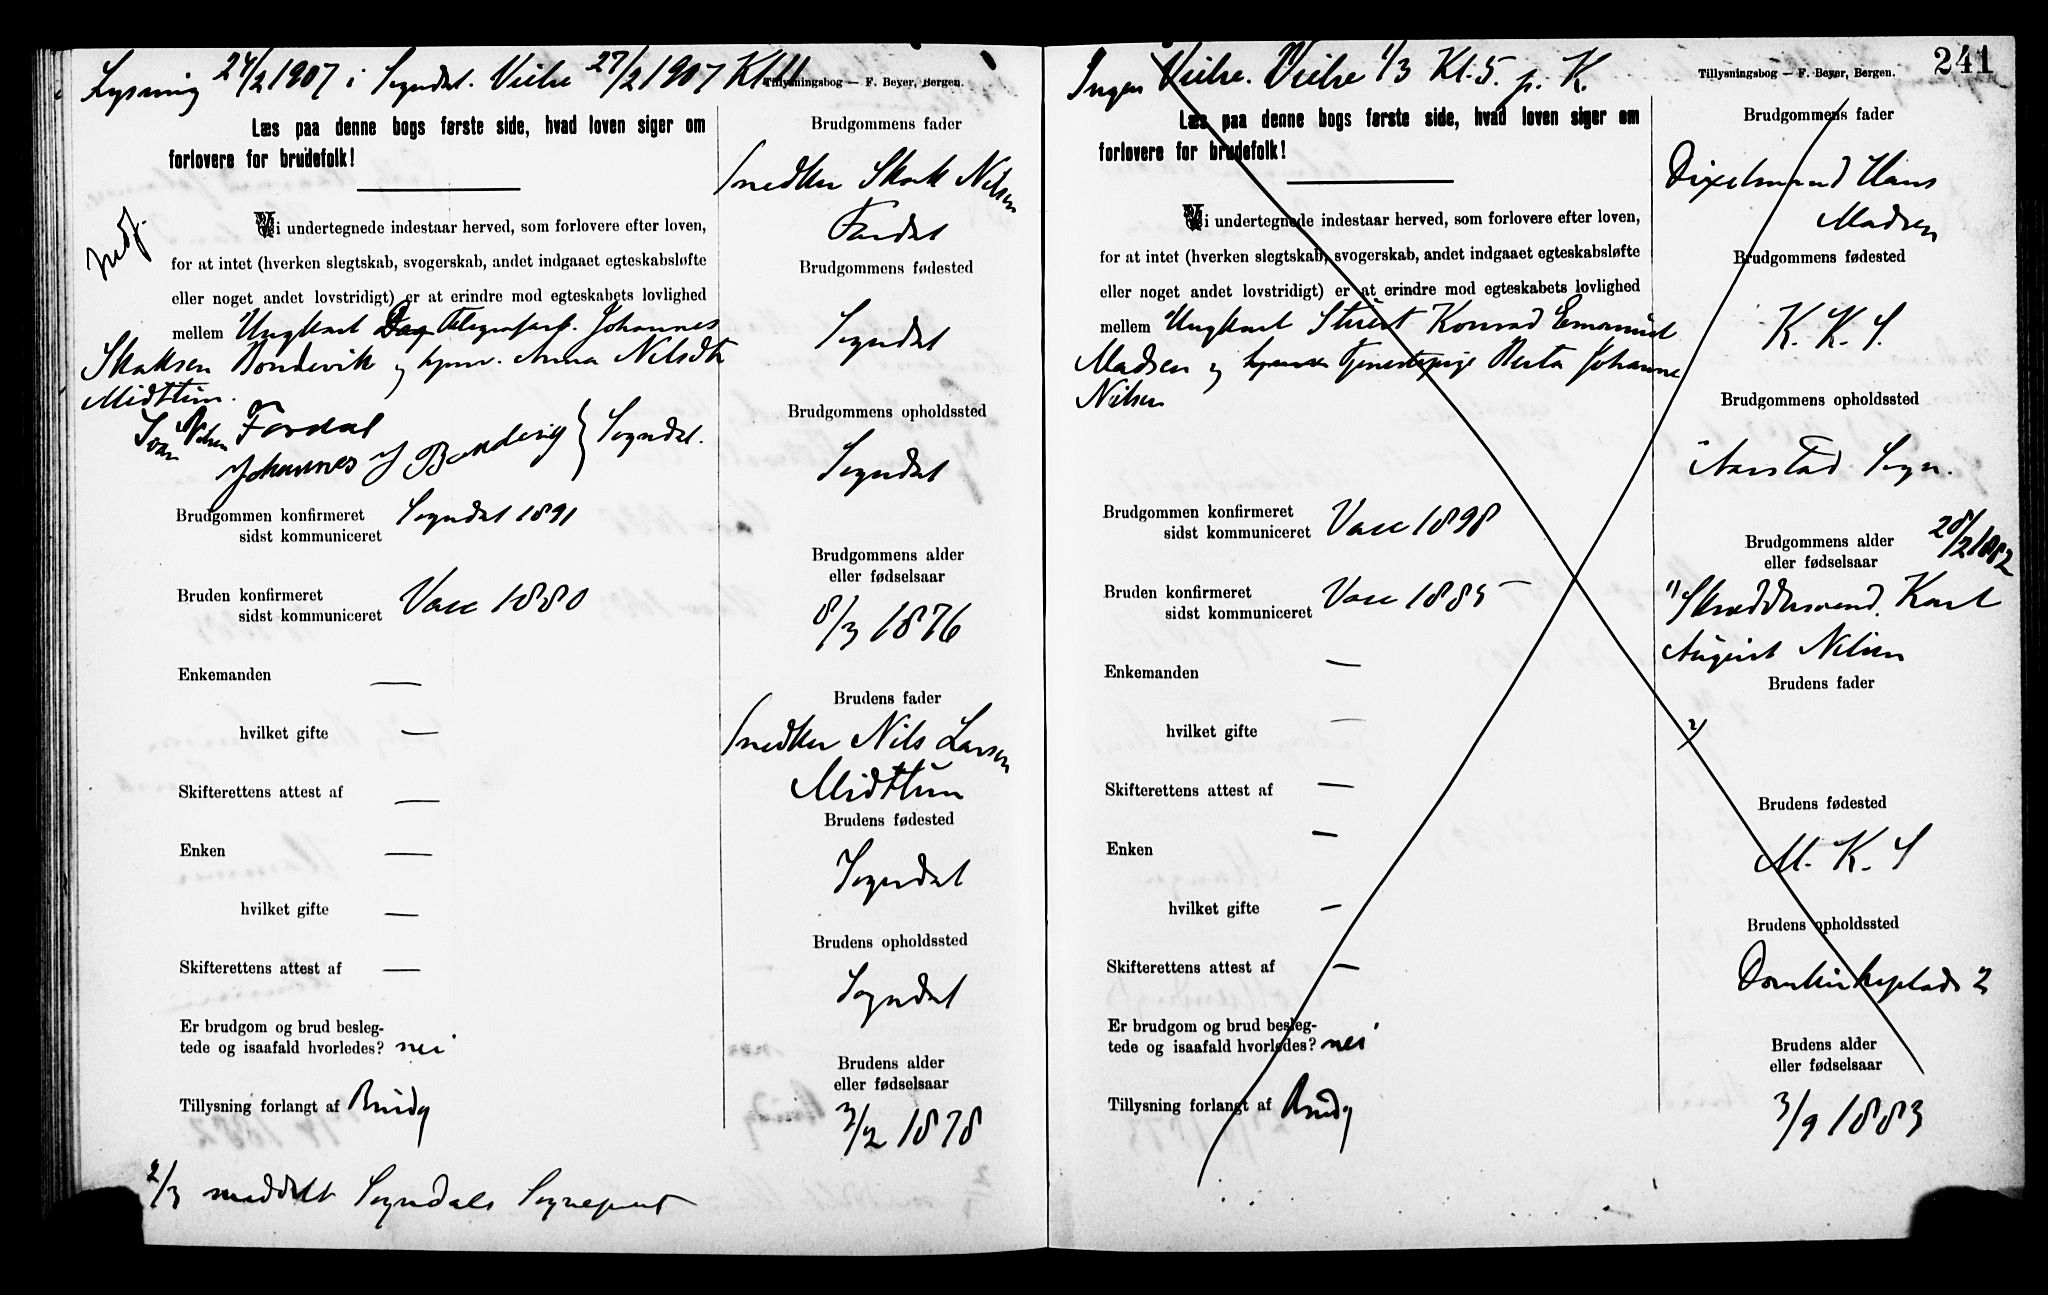 Lysning 24/2 1907 i Sogndal. Vielse 27/2 1907 Kl. 11
Tillysningsbog — F. Beyer, Bergen.
Læs paa denne bogs første side, hvad loven siger om
forlovere for brudefolk!
Vi undertegnede indestaar herved, som forlovere efter loven,
for at intet (hverken slegtskab, svogerskab, andet indgaaet egteskabsløfte
eller noget andet lovstridigt) er at erindre mod egteskabets lovlighed
mellem Ungkarl Telegrafarb. Johannes
Skaksen Bondevik og Anna Nilsdtr
Midttun.
Ivar Nilsen Fardal
Johannes J Bondevig } Sogndal.
Brudgommen konfirmeret Sogndal 1891
sidst kommuniceret
Bruden konfirmeret Vacc 1880
sidst kommuniceret
Enkemanden —
hvilket gifte —
Skifterettens attest af —
Enken —
hvilket gifte —
Skifterettens attest af —
Er brudgom og brud besleg-
tede og isaafald hvorledes? nei
Tillysning forlangt af Brudg
2/3 meddelt Sogndals Sogneprest
Brudgommens fader
Snedker Skak Nilsen
Fardal
Brudgommens fødested
Sogndal
Brudgommens opholdssted
Sogndal
Brudgommens alder
eller fødselsaar
8/3 1876
Brudens fader
Snedker Nils Larsen
Midttun
Brudens fødested
Sogndal
Brudens opholdssted
Sogndal
Brudens alder
eller fødselsaar
3/2 1878
Ingen Vielse. Vielse 1/3 Kl. 5. p. K.
Tillysningsbog — F. Beyer, Bergen.
241
Læs paa denne bogs første side, hvad loven siger om
forlovere for brudefolk!
Vi undertegnede indestaar herved, som forlovere efter loven,
for at intet (hverken slegtskab, svogerskab, andet indgaaet egteskabsløfte
eller noget andet lovstridigt) er at erindre mod egteskabets lovlighed
mellem Ungkarl Stuert Konrad Emanuel
Madsen og Tjenestepige Berta Johanne
Nilsen
Brudgommen konfirmeret Vacc 1898
sidst kommuniceret
Bruden konfirmeret Vacc 1885 —
sidst kommuniceret
Enkemanden —
hvilket gifte —
Skifterettens attest af —
Enken —
hvilket gifte —
Skifterettens attest af —
Er brudgom og brud besleg-
tede og isaafald hvorledes? nei
Tillysning forlangt af Brudg
Brudgommens fader
Dixelmand Hans
Madsen
Brudgommens fødested
K. K. S.
Brudgommens opholdssted
Aarstad Sogn.
Brudgommens alder
eller fødselsaar
28/2 1882
1) Skræddersvend Karl
August Nilsen
Brudens fader
2)
Brudens fødested
M. K. S
Brudens opholdssted
Domkirkeplads 2
Brudens alder
eller fødselsaar
3/9 1883